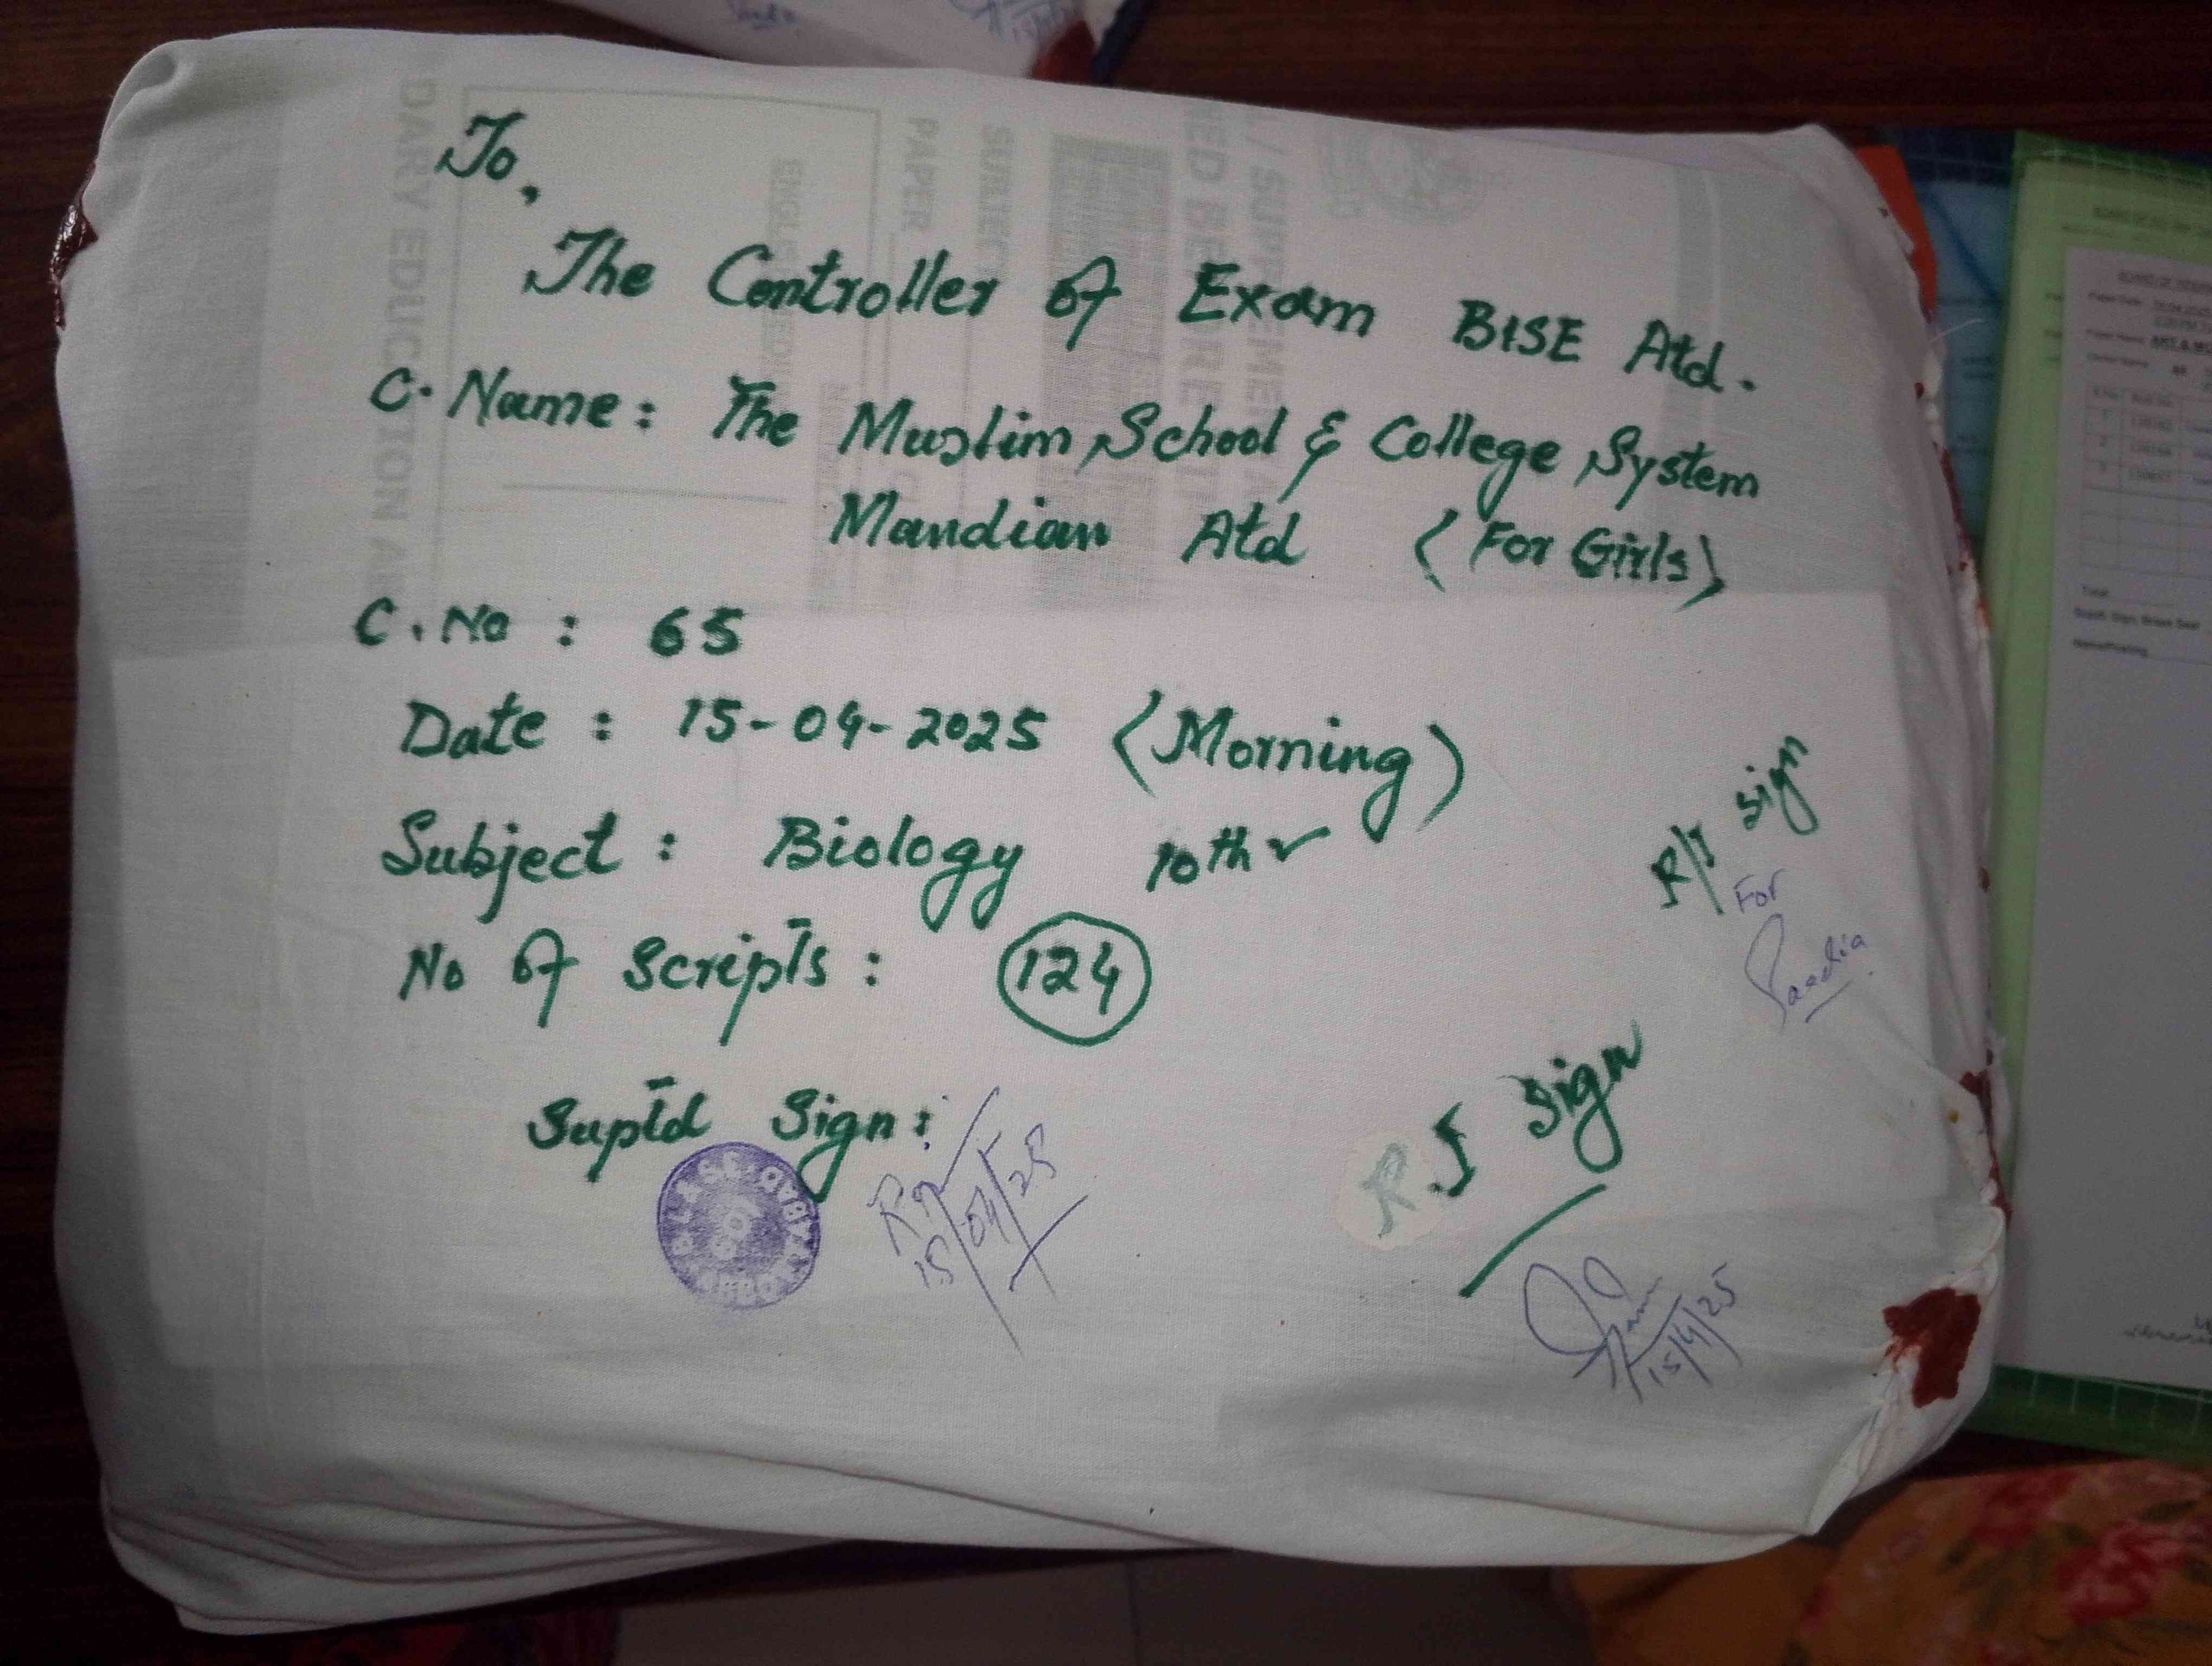 To,
The Controller of Exam BISE Atd.
C. Name: The Muslim School & College System
Mandian Atd (For Girls)
C. No : 65
Date : 15-04-2025 (Morning)
Subject : Biology 10th
No of Scripts : 124
Suptd Sign:
15/04/25
R/I Sign
For
Saadia
R.I Sign
15/4/25
DARY EDUCATION AB
PAPER
SUBJECT